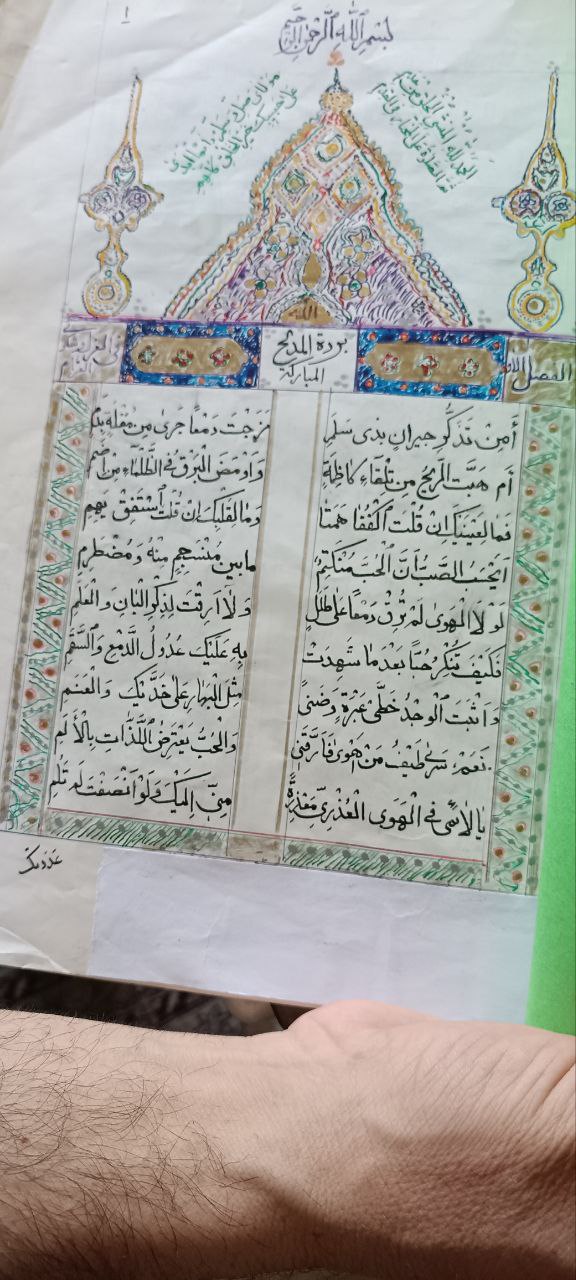 ١
بسم الله الرحمن الرحيم
الحمد لله المنشي الخلق من عدم
ثم الصلاة على المختار في القدم
مولاي صل وسلم دائما ابدا
على حبيبك خير الخلق كلهم
الله
الفصل الاول
بردة المديح
المباركة
في الغزل وشكوى
الغرام
أمن تذكر جيران بذى سلم
مزجت دمعا جرى من مقلة بدم
أم هبت الريح من تلقاء كاظمة
وأومض البرق في الظلماء من اضم
فما لعينيك ان قلت اكففا همتا
وما لقلبك ان قلت استفق يهم
ايحسب الصب أن الحب منكتم
ما بين منسجم منه ومضطرم
لولا الهوى لم ترق دمعا على طلل
ولا ارقت لذكر البان والعلم
فكيف تنكر حبا بعد ما شهدت
به عليك عدول الدمع والسقم
واثبت الوجد خطى عبرة وضنى
مثل البهار على خديك والعنم
نعم سرى طيف من اهوى فأرقنى
والحب يعترض اللذات بالألم
يا لائمى في الهوى العذرى معذرة
منى اليك ولو انصفت لم تلم
عدتك